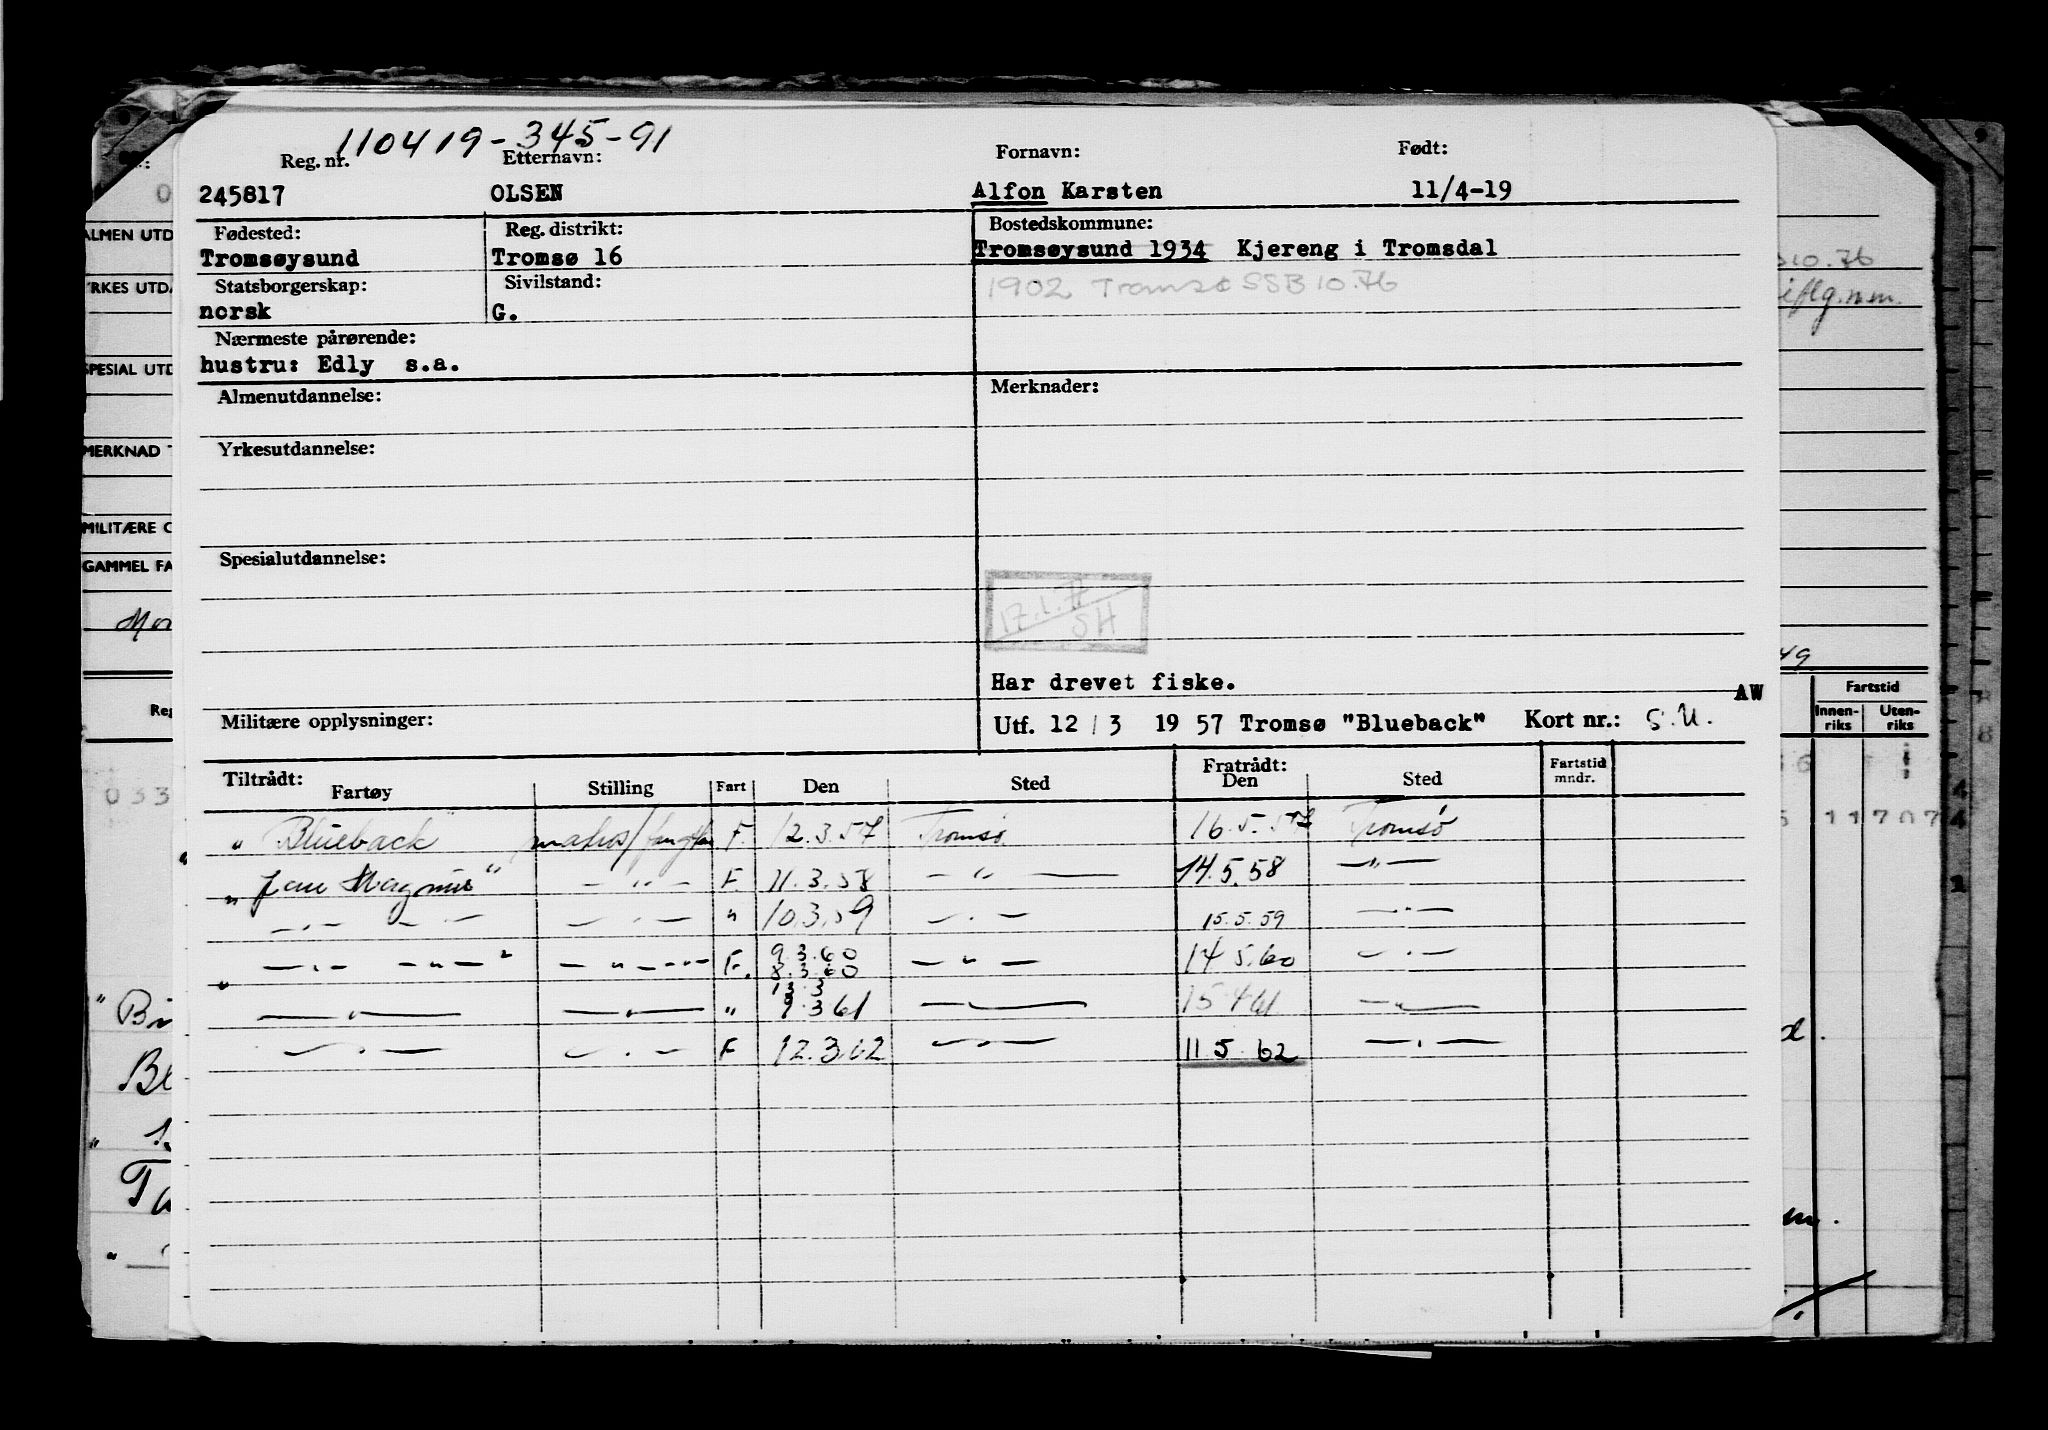 110419-345-91
Reg. nr. Etternavn: Fornavn: Født:
245817 OLSEN Alfon Karsten 11/4-19
Fødested: Reg. distrikt: Bostedskommune:
Tromsøysund Tromsø 16 Tromsøysund 1934 Kjereng i Tromsdal
Statsborgerskap: Sivilstand: 1902 Tromsø SSB 10.76
norsk G.
Nærmeste pårørende:
hustru: Edly s.a.
Almenutdannelse: Merknader:
Yrkesutdannelse:
Spesialutdannelse:
17.1.77
SH
Har drevet fiske.
AW
Militære opplysninger: Utf. 12/3 1957 Tromsø "Blueback" Kort nr.: S.U.
Tiltrådt: Fratrådt:
Fartøy Stilling Fart Den Sted Den Sted Fartstid mndr.
" Blueback matros/fangstm F. 12.3.57 Tromsø 16.5.57 Tromsø
" Jan Magnus " — " — F. 11.3.58 — " — 14.5.58 — " —
— " — — " — — " — " 10.3.59 — " — 15.5.59 — " —
— " — — " — " — " — " — F. 9.3.60 — " — 14.5.60 — " —
8.3.60
13.3
— " — — " — " 9.3.61 — " — 15.4.61 — " —
— " — — " — F 12.3.62 — " — 11.5.62 — " —
ALMEN UTD
YRKES UTDA
SPESIAL UTD
MERKNAD T
MILITÆRE O
GAMMEL FA
Reg
033
Bl
Ta
10.76
iflg. n.m.
49
Fartstid
Innen-riks Uten-riks
11707